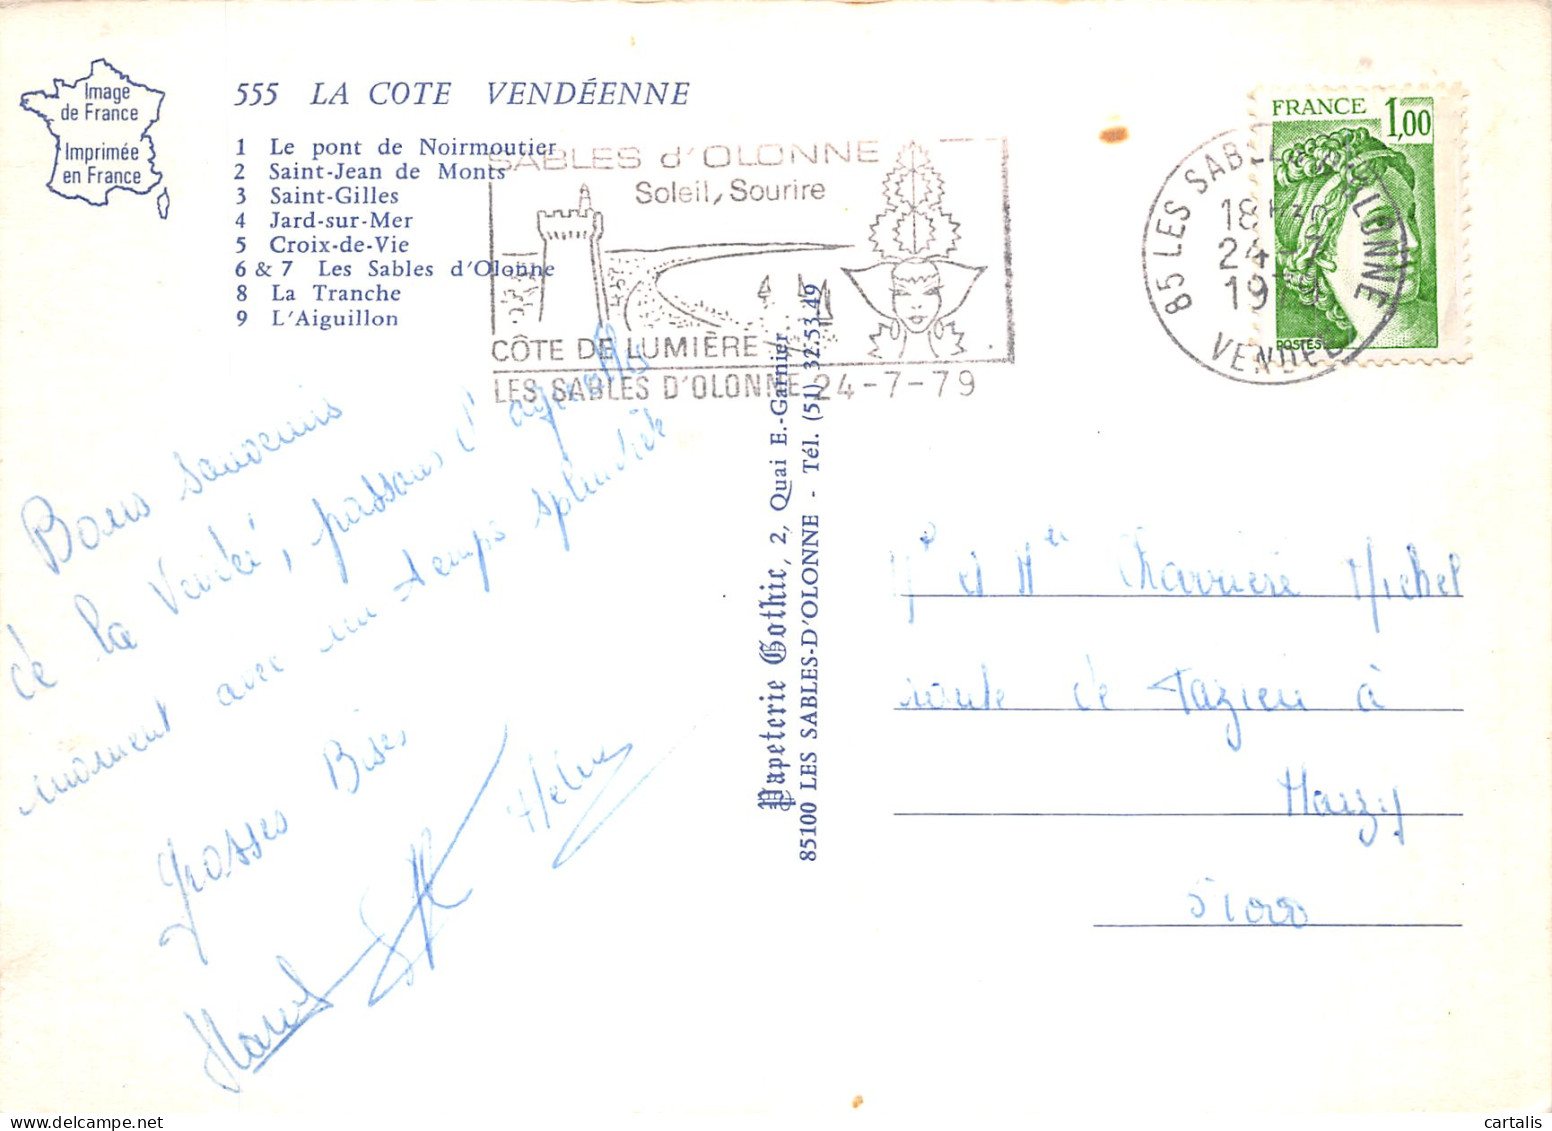 Image
de France
Imprimée
en France
555 LA COTE VENDÉENNE
1 Le pont de Noirmoutier
2 Saint-Jean de Monts
3 Saint-Gilles
4 Jard-sur-Mer
5 Croix-de-Vie
6 & 7 Les Sables d'Olonne
8 La Tranche
9 L'Aiguillon
SABLES d'OLONNE
Soleil, Sourire
CÔTE DE LUMIÈRE
LES SABLES D'OLONNE 24-7-79
FRANCE 1,00
POSTES
85 LES SABLES D'OLONNE
18H
24-7
1979
VENDEE
Bons souvenirs
de la Vendée, passons d'agréables
moment avec un temps splendide
Grosses Bises
Papeterie Gothic, 2, Quai E.-Garnier
85100 LES SABLES-D'OLONNE - Tél. (51) 32.53.49
Mr et Mme Charrière Michel
route de Tazieu à
51000
cartalis